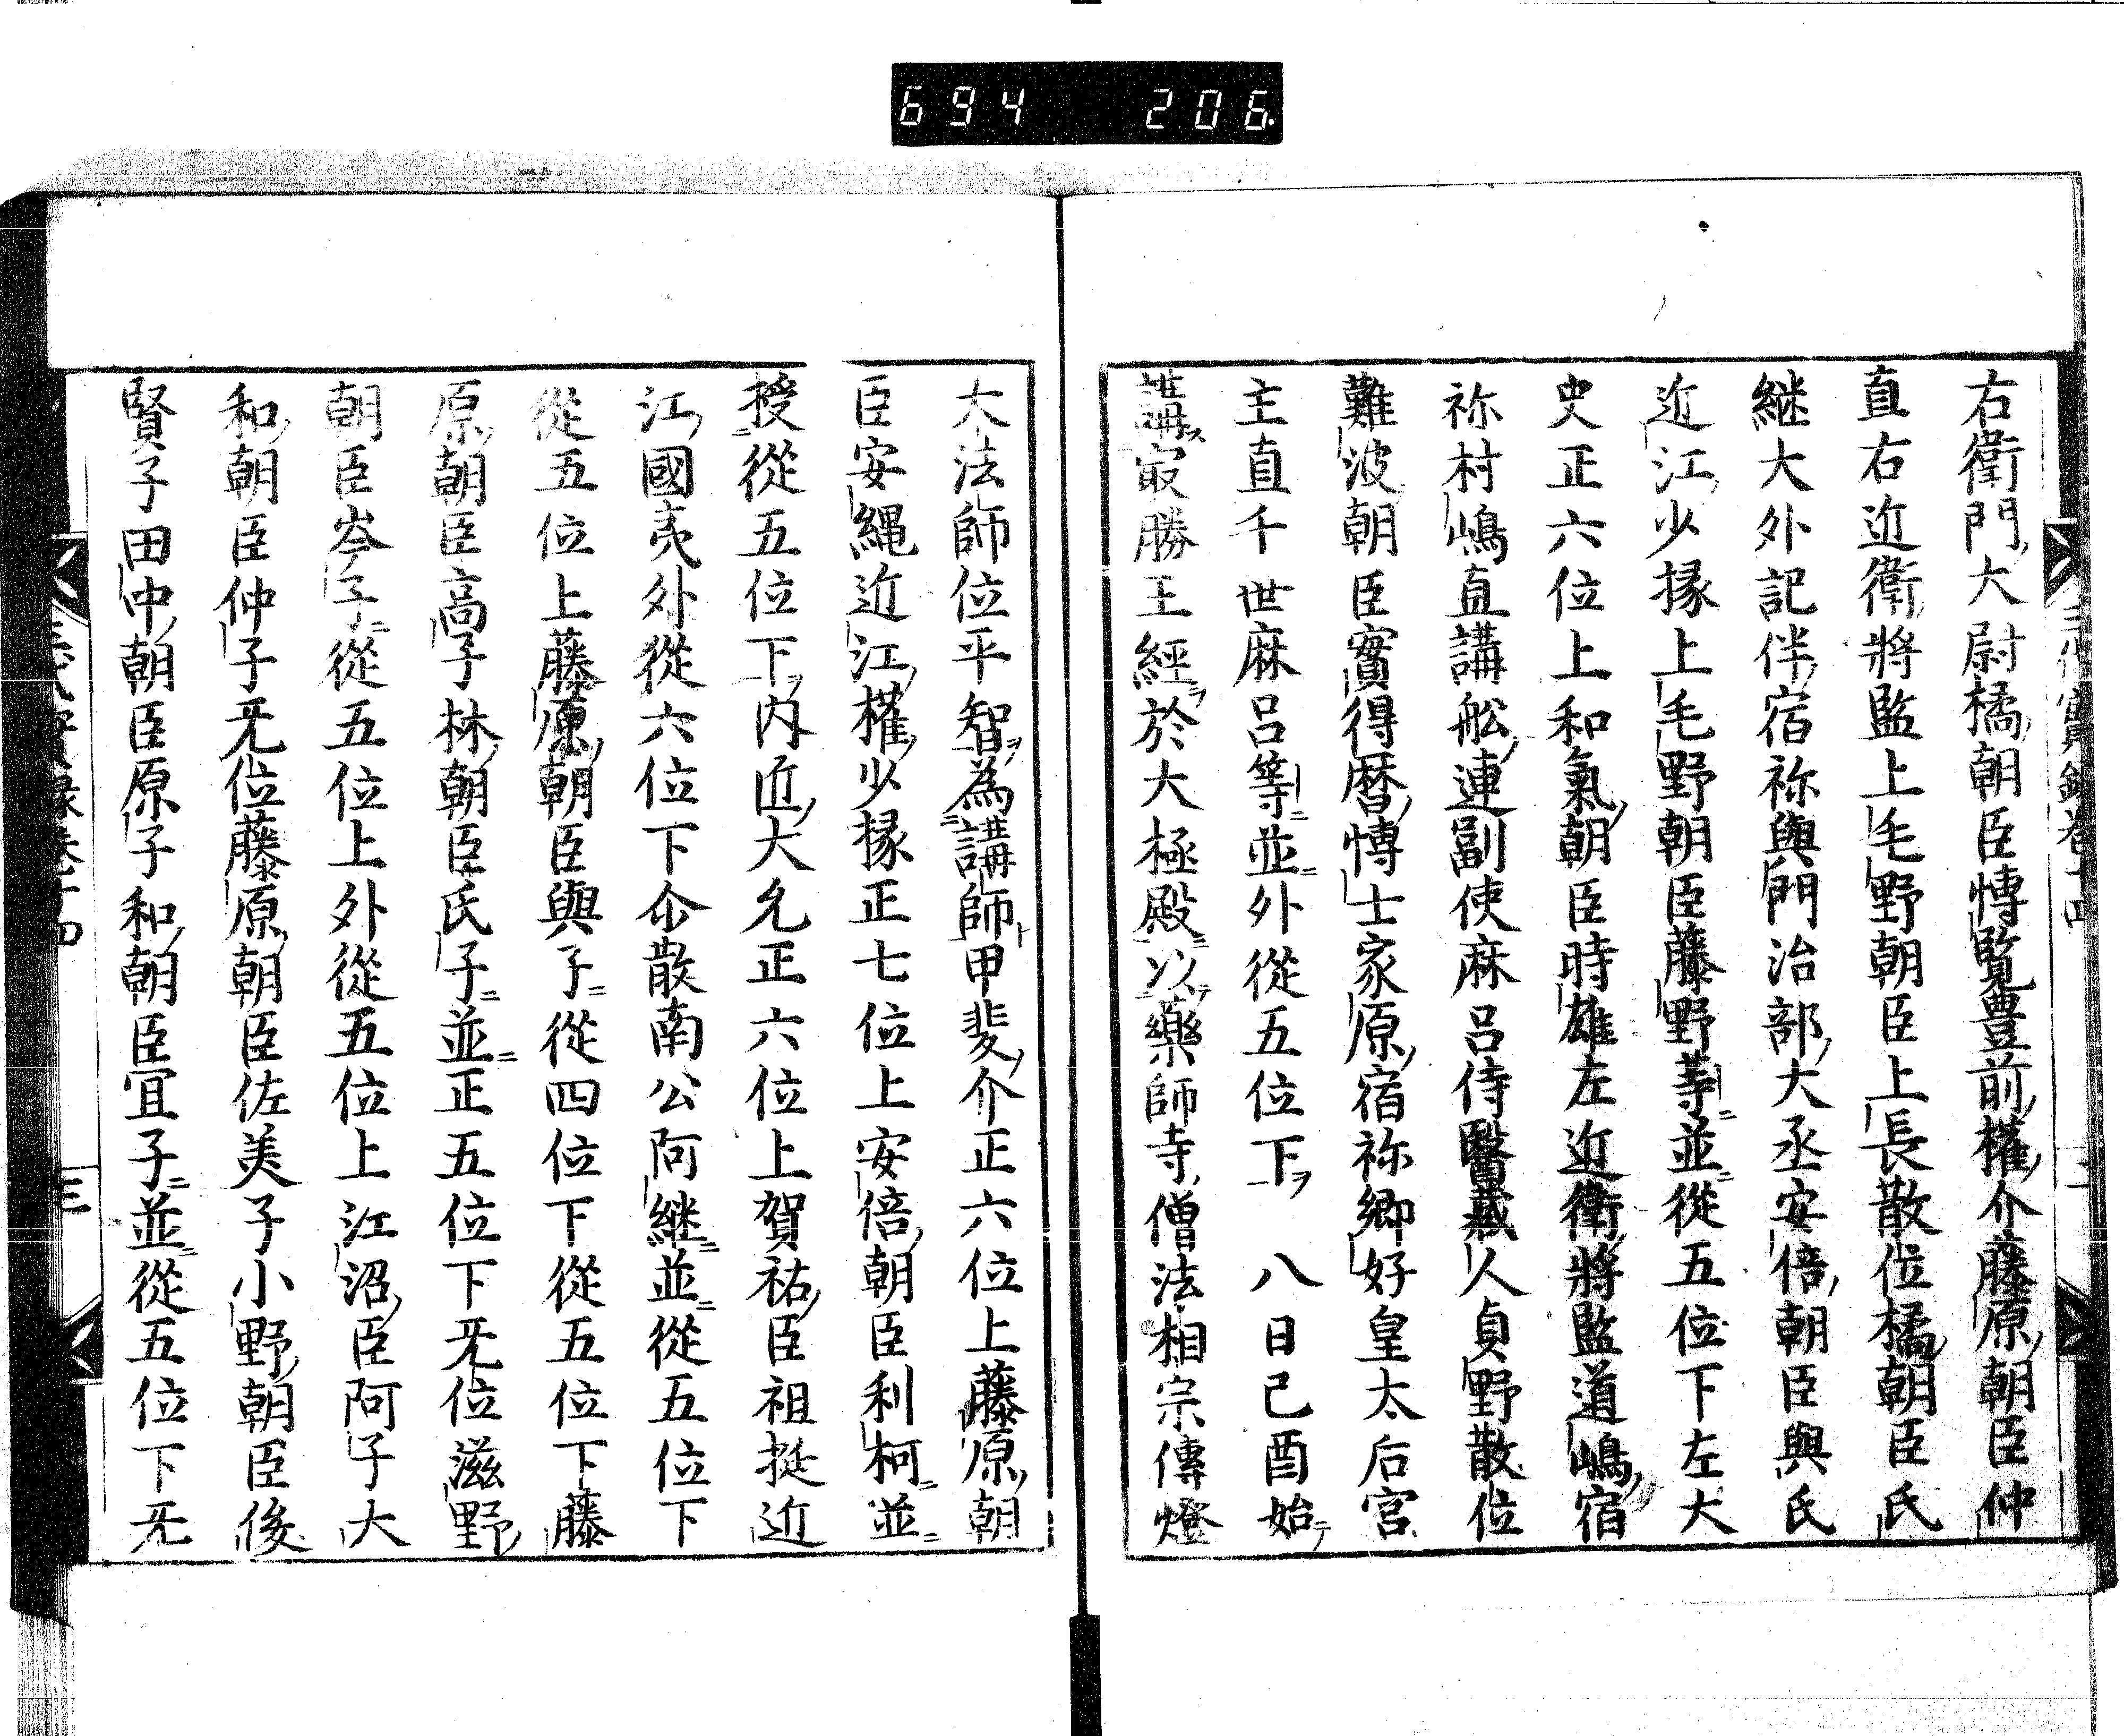 694 206
右衛門大尉橘朝臣博覽豊前權介藤原朝臣仲
直右近衛將監上毛野朝臣上長散位橘朝臣氏
継大外記伴宿祢與門治部大丞安倍朝臣與氏
近江少掾上毛野朝臣藤野等並從五位下左大
史正六位上和氣朝臣時雄左近衛將監道嶋宿
祢村嶋直講舩連副使麻呂侍醫藏人貞野散位
難波朝臣實得曆博士家原宿祢郷好皇太后宮
主直千世麻呂等並外從五位下 八日己酉始
講冣勝王經於大極殿以藥師寺僧法相宗傳燈
大法師位平智為講師甲斐介正六位上藤原朝
臣安縄近江權少掾正七位上安倍朝臣利柯並
授從五位下内匠大允正六位上賀祐臣祖挺近
江國夷外從六位下尒散南公阿継並從五位下
從五位上藤原朝臣與子從四位下從五位下藤
原朝臣高子林朝臣氏子並正五位下旡位滋野
朝臣岑子從五位上外從五位上江沼臣阿子大
和朝臣仲子旡位藤原朝臣佐美子小野朝臣後
賢子田中朝臣原子和朝臣宜子並從五位下旡
三